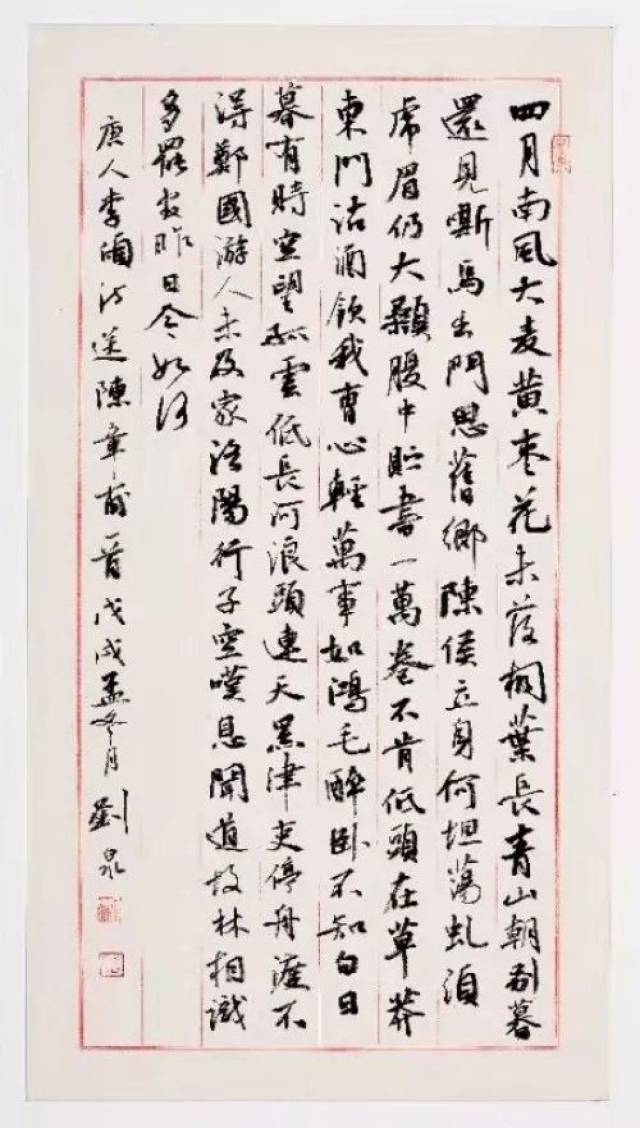 四月南風大麦黄枣花未落桐葉長青山朝别暮
還見嘶馬出門思舊鄉陳侯立身何坦蕩虬須
虎眉仍大顙腹中貯書一萬卷不肯低頭在草莽
東門沽酒飲我曹心輕萬事如鴻毛醉卧不知白日
暮有時空望孤雲低長河浪頭連天黑津吏停舟渡不
得鄭國游人未及家洛陽行子空嘆息聞道故林相識
多罷官昨日今如何
唐人李頎詩送陳章甫一首戊戌孟冬月劉泉